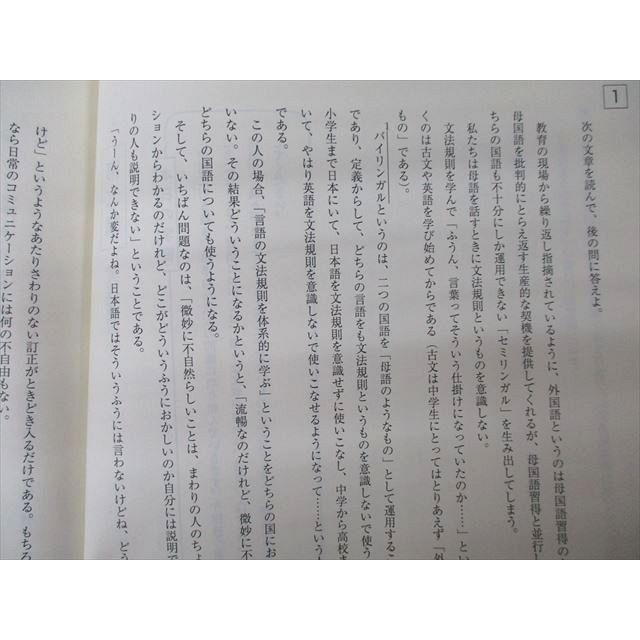 1
次の文章を読んで、後の問に答えよ。
教育の現場から繰り返し指摘されているように、外国語というのは母国語習得の
母国語を批判的にとらえ返す生産的な契機を提供してくれるが、母国語習得と並行し
ちらの国語も不十分にしか運用できない「セミリンガル」を生み出してしまう。
私たちは母語を話すときに文法規則というものを意識しない。
文法規則を学んで「ふうん、言葉ってそういう仕掛けになっていたのか……」とい
くのは古文や英語を学び始めてからである（古文は中学生にとってはとりあえず「外
もの」である）。
バイリンガルというのは、二つの国語を「母語のようなもの」として運用するこ
であり、定義からして、どちらの言語をも文法規則というものを意識しないで使う
小学生まで日本にいて、日本語を文法規則を意識せずに使いこなし、中学から高校ま
いて、やはり英語を文法規則を意識しないで使いこなせるようになって……という
である。
この人の場合、「言語の文法規則を体系的に学ぶ」ということをどちらの国にお
いない。その結果どういうことになるかというと、「流暢なのだけれど、微妙に不
どちらの国語についても使うようになる。
そして、いちばん問題なのは、「微妙に不自然らしいことは、まわりの人のちょ
ションからわかるのだけれど、どこがどういうふうにおかしいのか自分には説明で
りの人も説明できない」ということである。
「うーん、なんか変だよね。日本語ではそういうふうには言わないけどね、どう
けど」というようなあたりさわりのない訂正がときどき入るだけである。もちろ
なら日常のコミュニケーションには何の不自由もない。